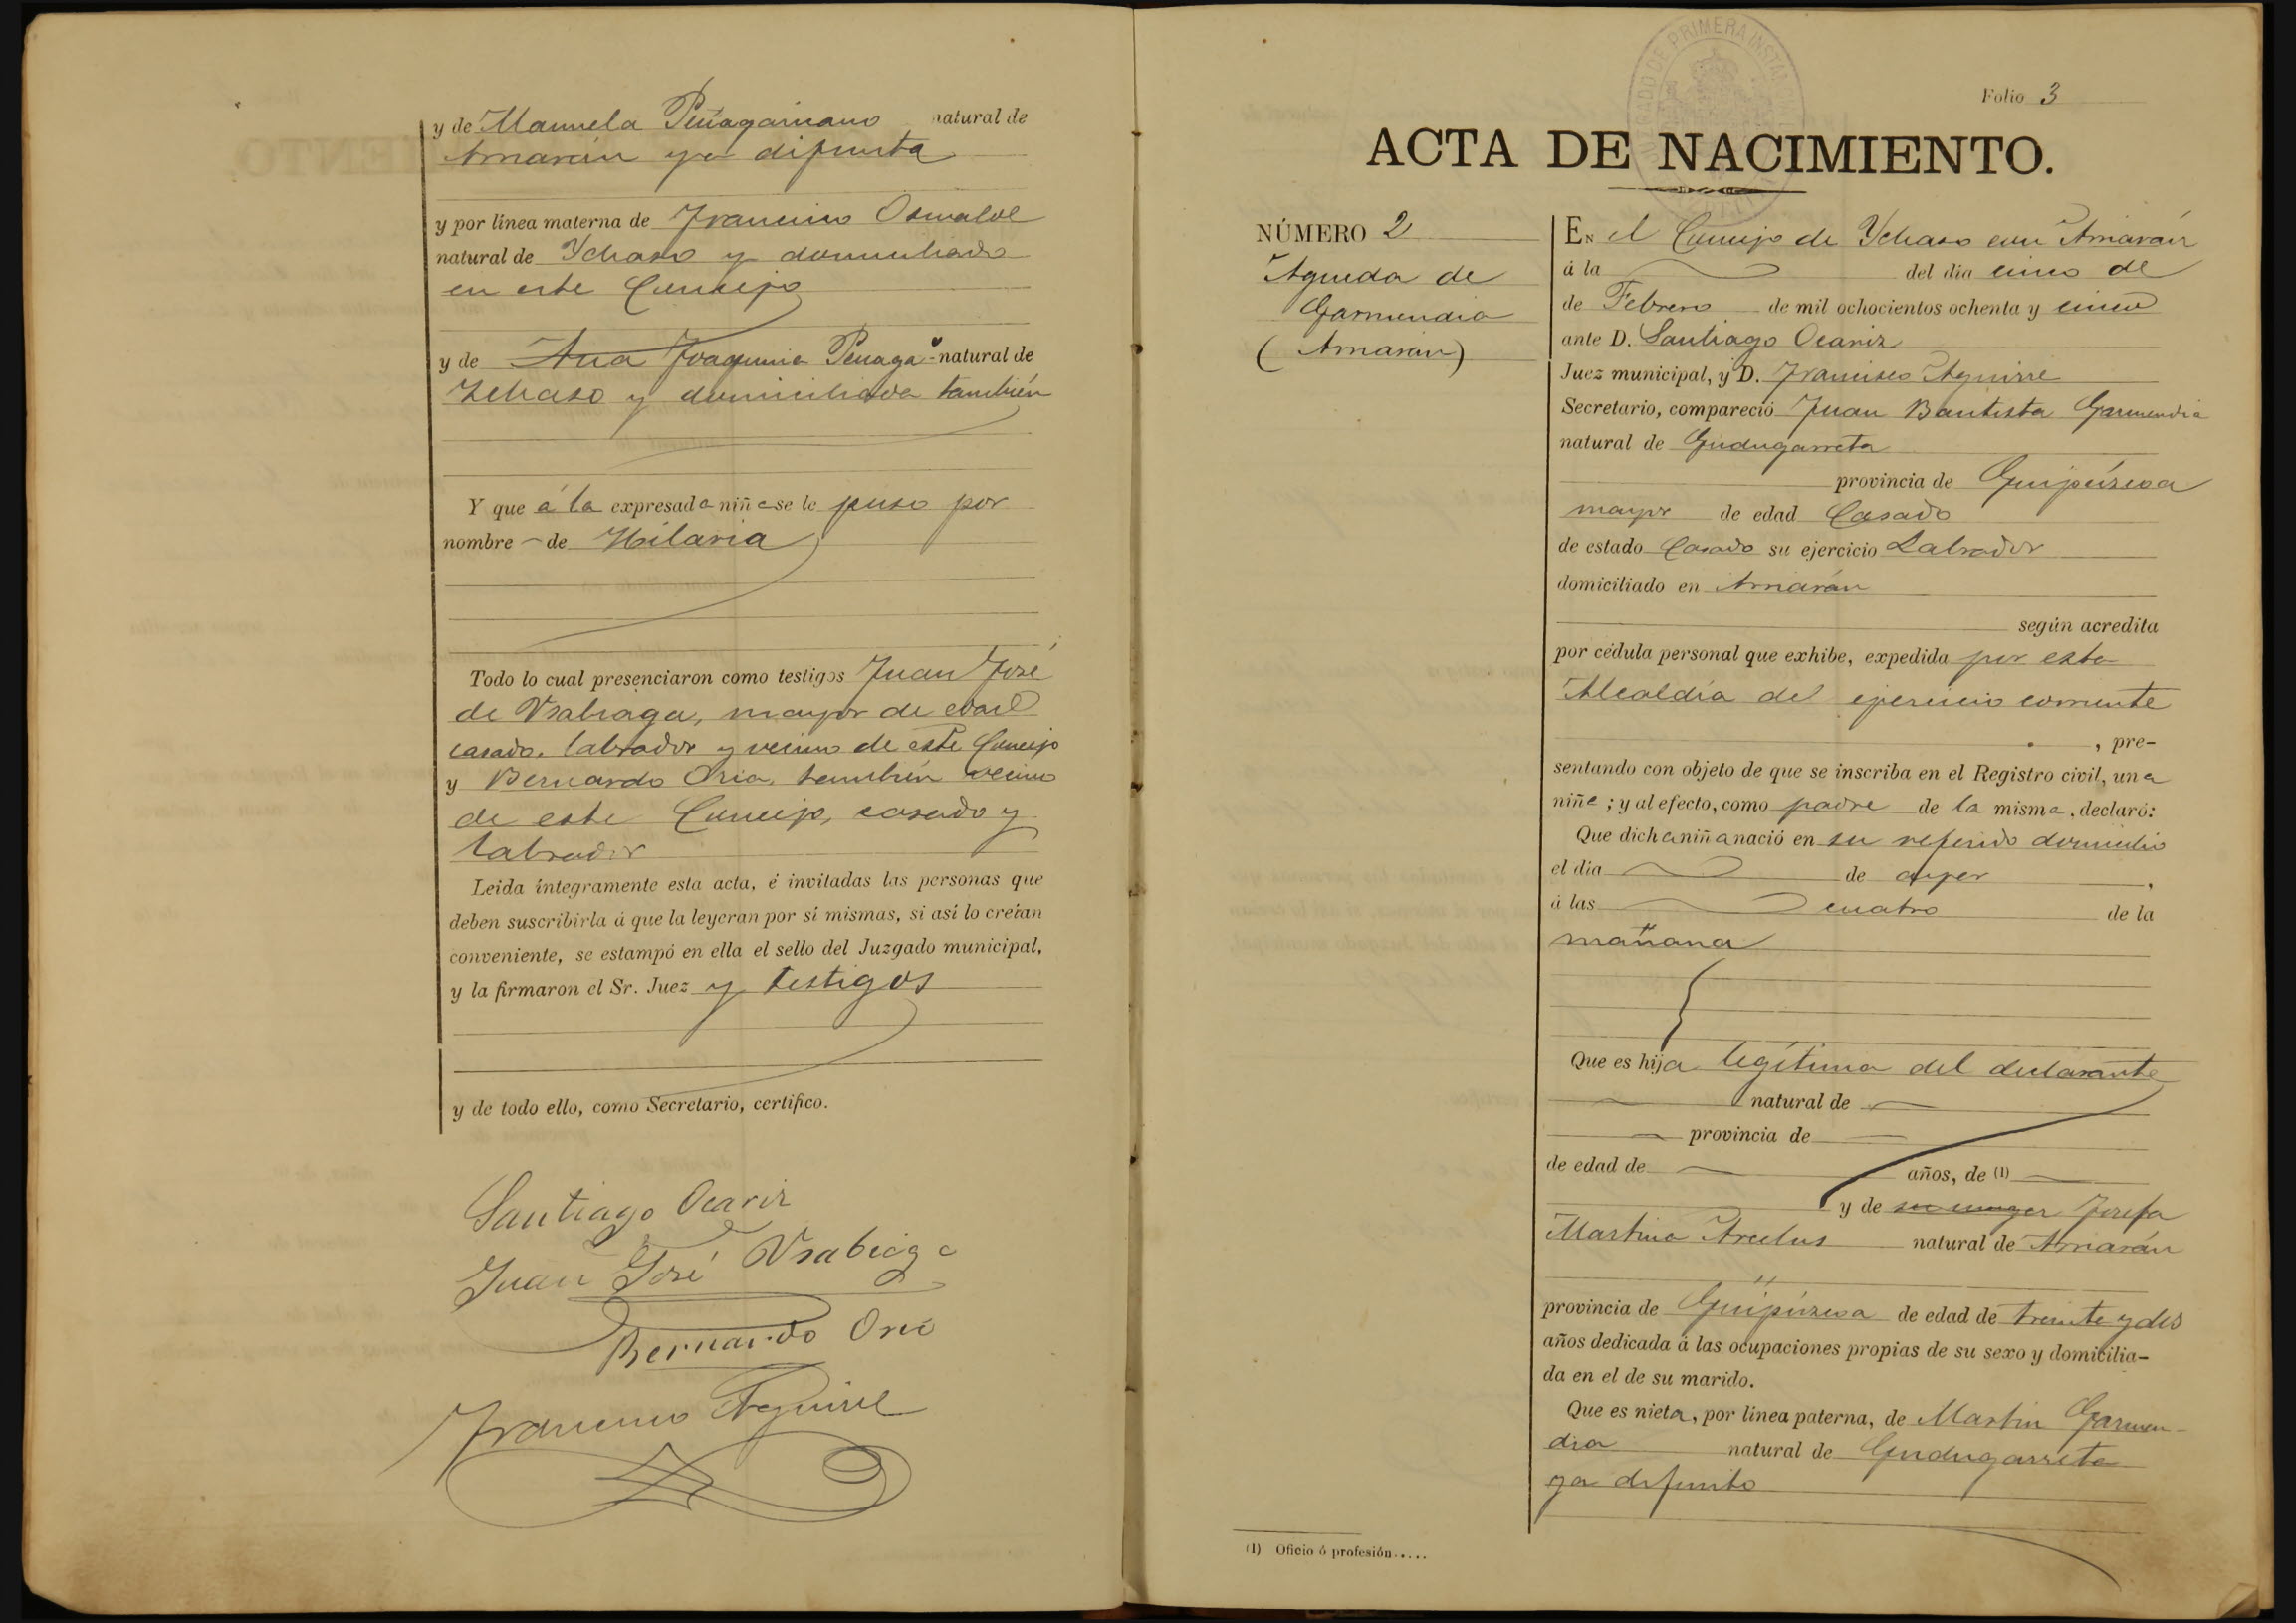 y de Manuela Peñagaricano natural de
Arriarán ya difunta
y por línea materna de Francisco Oswalde
natural de Ychaso y domiciliado
en este Concejo
y de Ana Joaquina Penaga natural de
Ichaso y domiciliada también
Y que á la expresada niña se le puso por
nombre de Hilaria
Todo lo cual presenciaron como testigos Juan José
de Usabiaga, mayor de edad
casado, labrador y vecino de este Concejo
y Bernardo Oria, también vecino
de este Concejo, casado y
labrador
Leida íntegramente esta acta, é invitadas las personas que
deben suscribirla á que la leyeran por sí mismas, si así lo creían
conveniente, se estampó en ella el sello del Juzgado municipal,
y la firmaron el Sr. Juez y testigos
y de todo ello, como Secretario, certifico.
Santiago Ocariz
Juan José Usabiaga
Bernardo Oria
Francisco Aguirre
DE PRIMERA INSTAN
Folio 3
ACTA DE NACIMIENTO.
NÚMERO 2
Agueda de
Garmendia
(Arriarán)
En el Concejo de Ychaso con Arriarán
á la del dia cinco de
de Febrero de mil ochocientos ochenta y cinco
ante D. Santiago Ocariz
Juez municipal, y D. Francisco Aguirre
Secretario, compareció Juan Bautista Garmendia
natural de Gudugarreta
provincia de Guipúzcoa
mayor de edad Casado
de estado Casado su ejercicio Labrador
domiciliado en Arriarán
según acredita
por cédula personal que exhibe, expedida por esta
Alcaldía del ejercicio corriente
, pre-
sentando con objeto de que se inscriba en el Registro civil, una
niña; y al efecto, como padre de la misma, declaró:
Que dicha niña nació en su referido domicilio
el día de ayer ,
á las cuatro de la
mañana
Que es hija legítima del declarante
natural de
provincia de
de edad de años, de (1)
y de su muger Josefa
Martina Arculus natural de Arriarán
provincia de Guipúzcoa de edad de treinta y dos
años dedicada á las ocupaciones propias de su sexo y domicilia-
da en el de su marido.
Que es nieta, por línea paterna, de Martin Garmen-
dia natural de Gudugarreta
ya difunto
(1) Oficio ó profesión.....